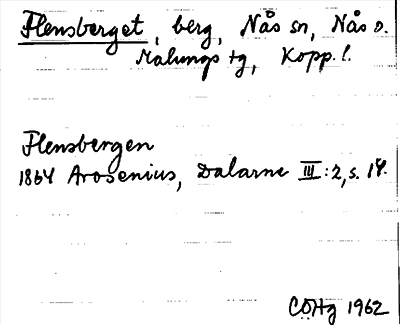 Flensberget, berg, Nås sn, Nås o.
Malungs tg, Kopp. l.
Flensbergen
1864 Arosenius, Dalarne III:2, s. 14.
CÖHg 1962